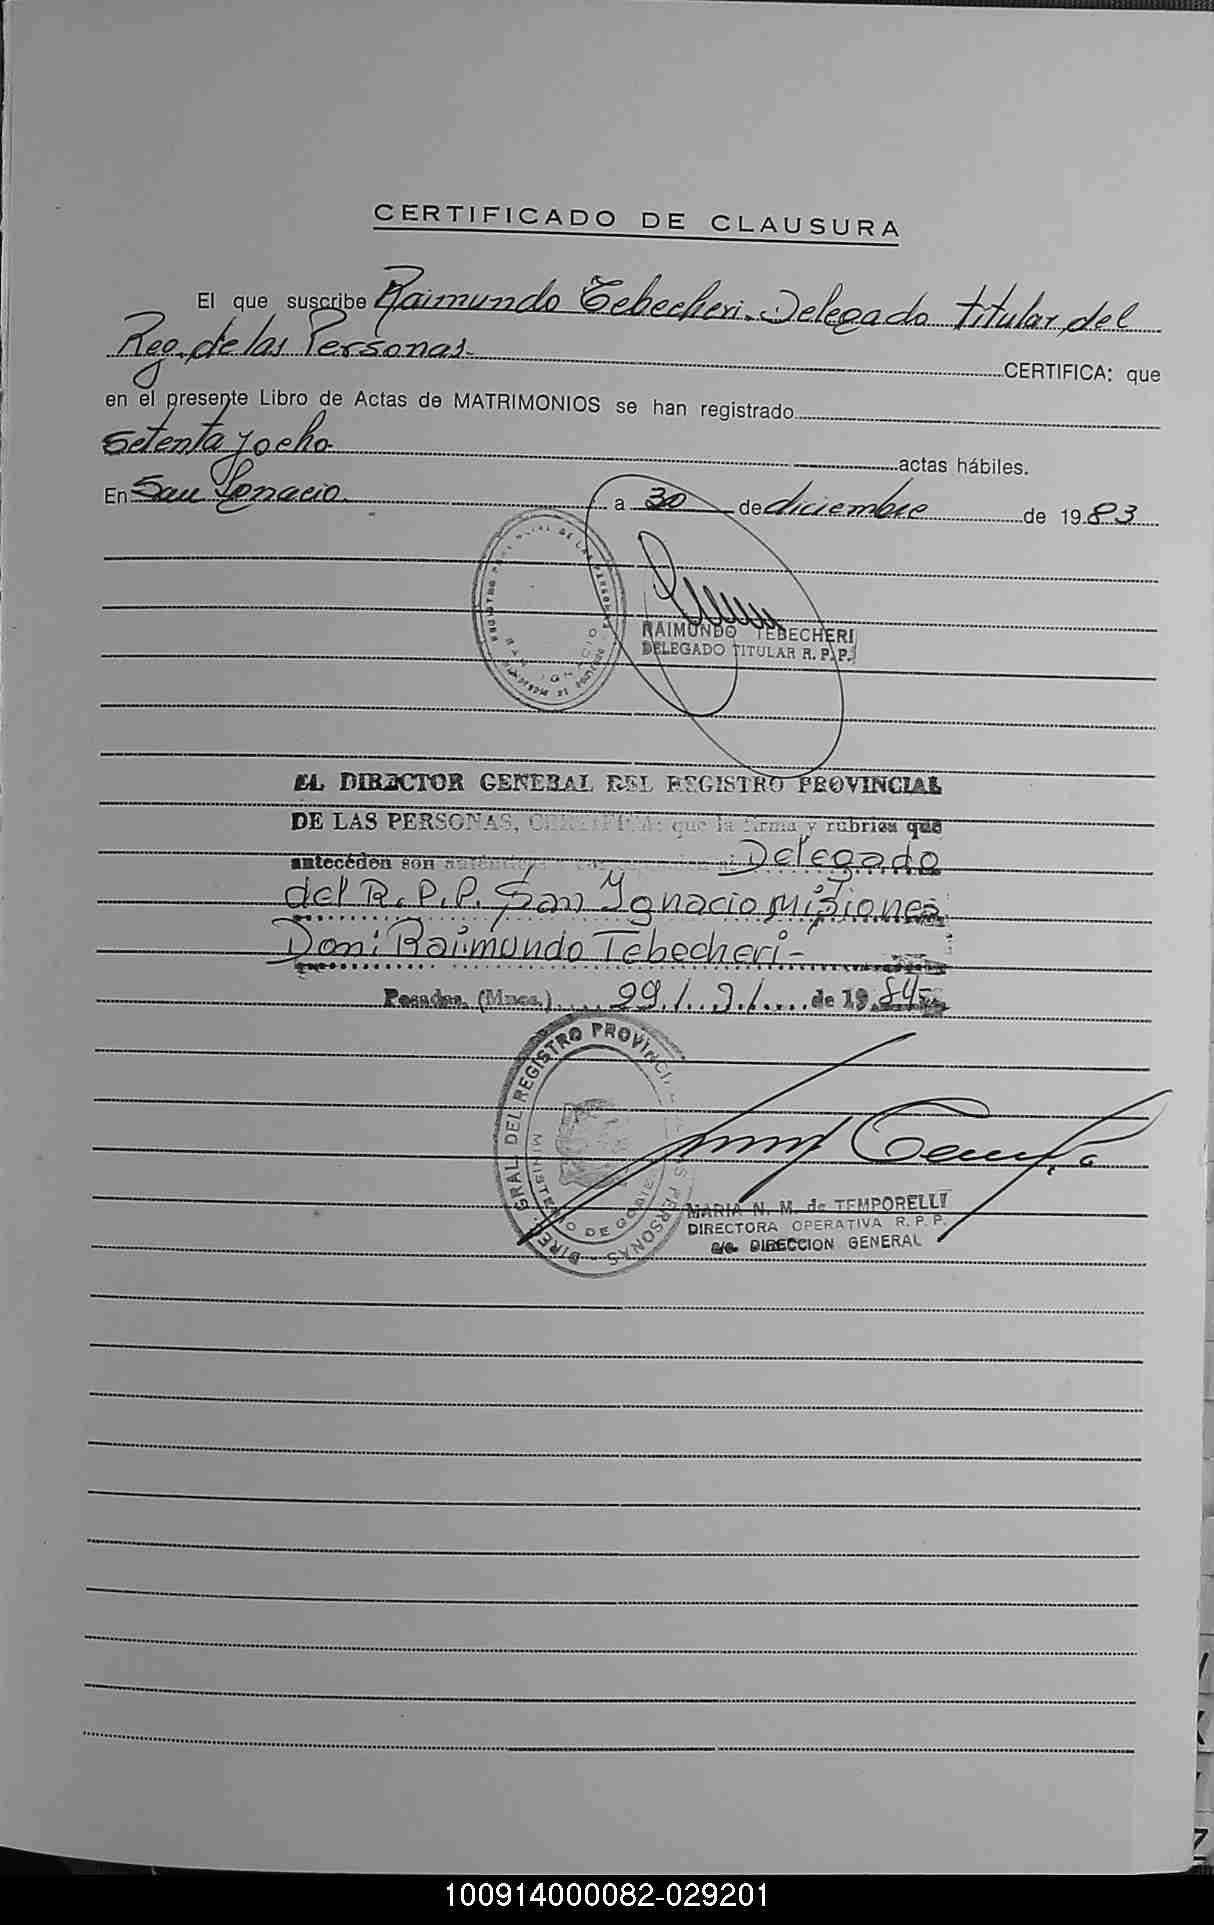 CERTIFICADO DE CLAUSURA
El que suscribe Raimundo Tebecheri. Delegado titular del
Reg. de las Personas. CERTIFICA: que
en el presente Libro de Actas de MATRIMONIOS se han registrado
Setenta y ocho actas hábiles.
En San Ignacio. a 30 de diciembre de 1983
RAIMUNDO TEBECHERI
DELEGADO TITULAR R. P. P.
SAN IGNACIO
EL DIRECTOR GENERAL DEL REGISTRO PROVINCIAL
DE LAS PERSONAS, CERTIFICA: que la firma y rubrica que
anteceden son Delegado
del R. P. P. San Ignacio Misiones
Don: Raimundo Tebecheri-
Posadas, (Mnes.) de 1984
DEL REGISTRO PROVINCIAL PERSONAS
MINISTERIO DE
MARIA N. M. de TEMPORELLI
DIRECTORA OPERATIVA R. P. P.
a/c. DIRECCION GENERAL
100914000082-029201